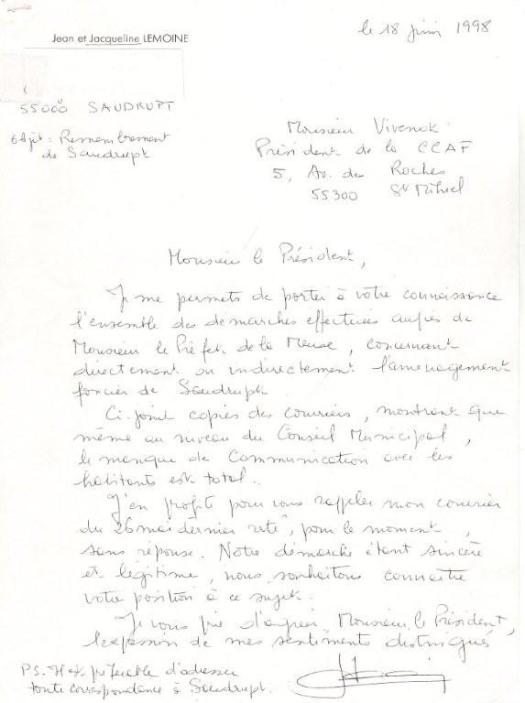 le 18 juin 1998
Jean et Jacqueline LEMOINE
55000 SAUDRUPT
Objet: Remembrement
de Saudrupt
Monsieur Vivenot
Président de la CCAF
5, Av. des Roches
55300 St Mihiel
Monsieur le Président,
Je me permets de porter à votre connaissance
l'ensemble des démarches effectuées auprès de
Monsieur le Préfet de la Meuse, concernant
directement ou indirectement l'aménagement
foncier de Saudrupt.
Ci-joint copies des courriers, montrant que
même au niveau du Conseil Municipal,
le manque de Communication avec les
habitants est total.
J'en profite pour vous rappeler mon courrier
du 26 mai dernier resté, pour le moment,
sans réponse. Notre démarche étant sincère
et légitime, nous souhaitons connaître
votre position à ce sujet.
Je vous prie d'agréer, Monsieur le Président,
l'expression de mes sentiments distingués
P.S. Il est préférable d'adresser
toute correspondance à Saudrupt.